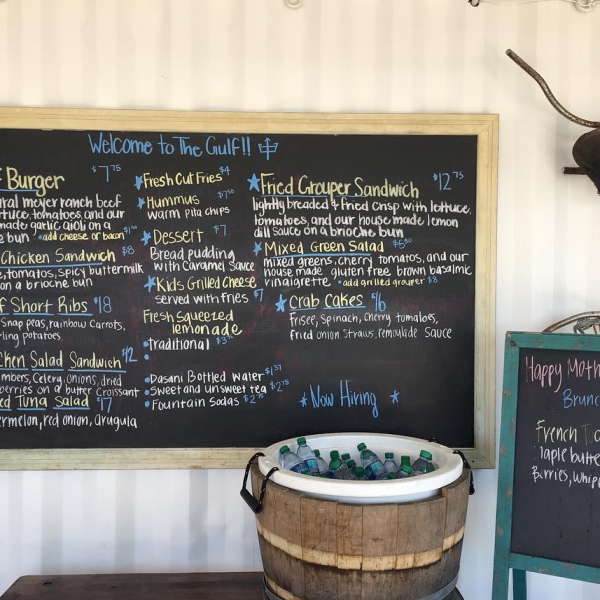 Welcome to The Gulf!!
Burger $7.75
meyer ranch beef
tomatoes, and our
made garlic aioli on a
bun *add cheese or bacon $1.50
Chicken Sandwich $8
tomatoes, spicy buttermilk
on a brioche bun
Short Ribs $18
Snap peas, rainbow carrots,
potatoes
Salad Sandwich $12
Celery, onions, dried
on a butter croissant
Tuna Salad $17
red onion, arugula
Fresh Cut Fries $4
Hummus $7.50
warm pita chips
Dessert $7
Bread pudding
with Caramel Sauce
Kids Grilled Cheese
served with fries $7
Fresh squeezed
lemonade
traditional
Dasani Bottled water
Sweet and unsweet tea $2.75
Fountain Sodas
Fried Grouper Sandwich $12.75
lightly breaded & fried crisp with lettuce,
tomatoes, and our house made lemon
dill sauce on a brioche bun
Mixed Green Salad
mixed greens, cherry tomatoes, and our
house made gluten free brown basalmic
vinaigrette *add grilled grouper $8
Crab Cakes $16
frisee, Spinach, Cherry tomatoes,
fried onion straws, remoulade sauce
Now Hiring
Happy
Brunc
French
butte
Berries,